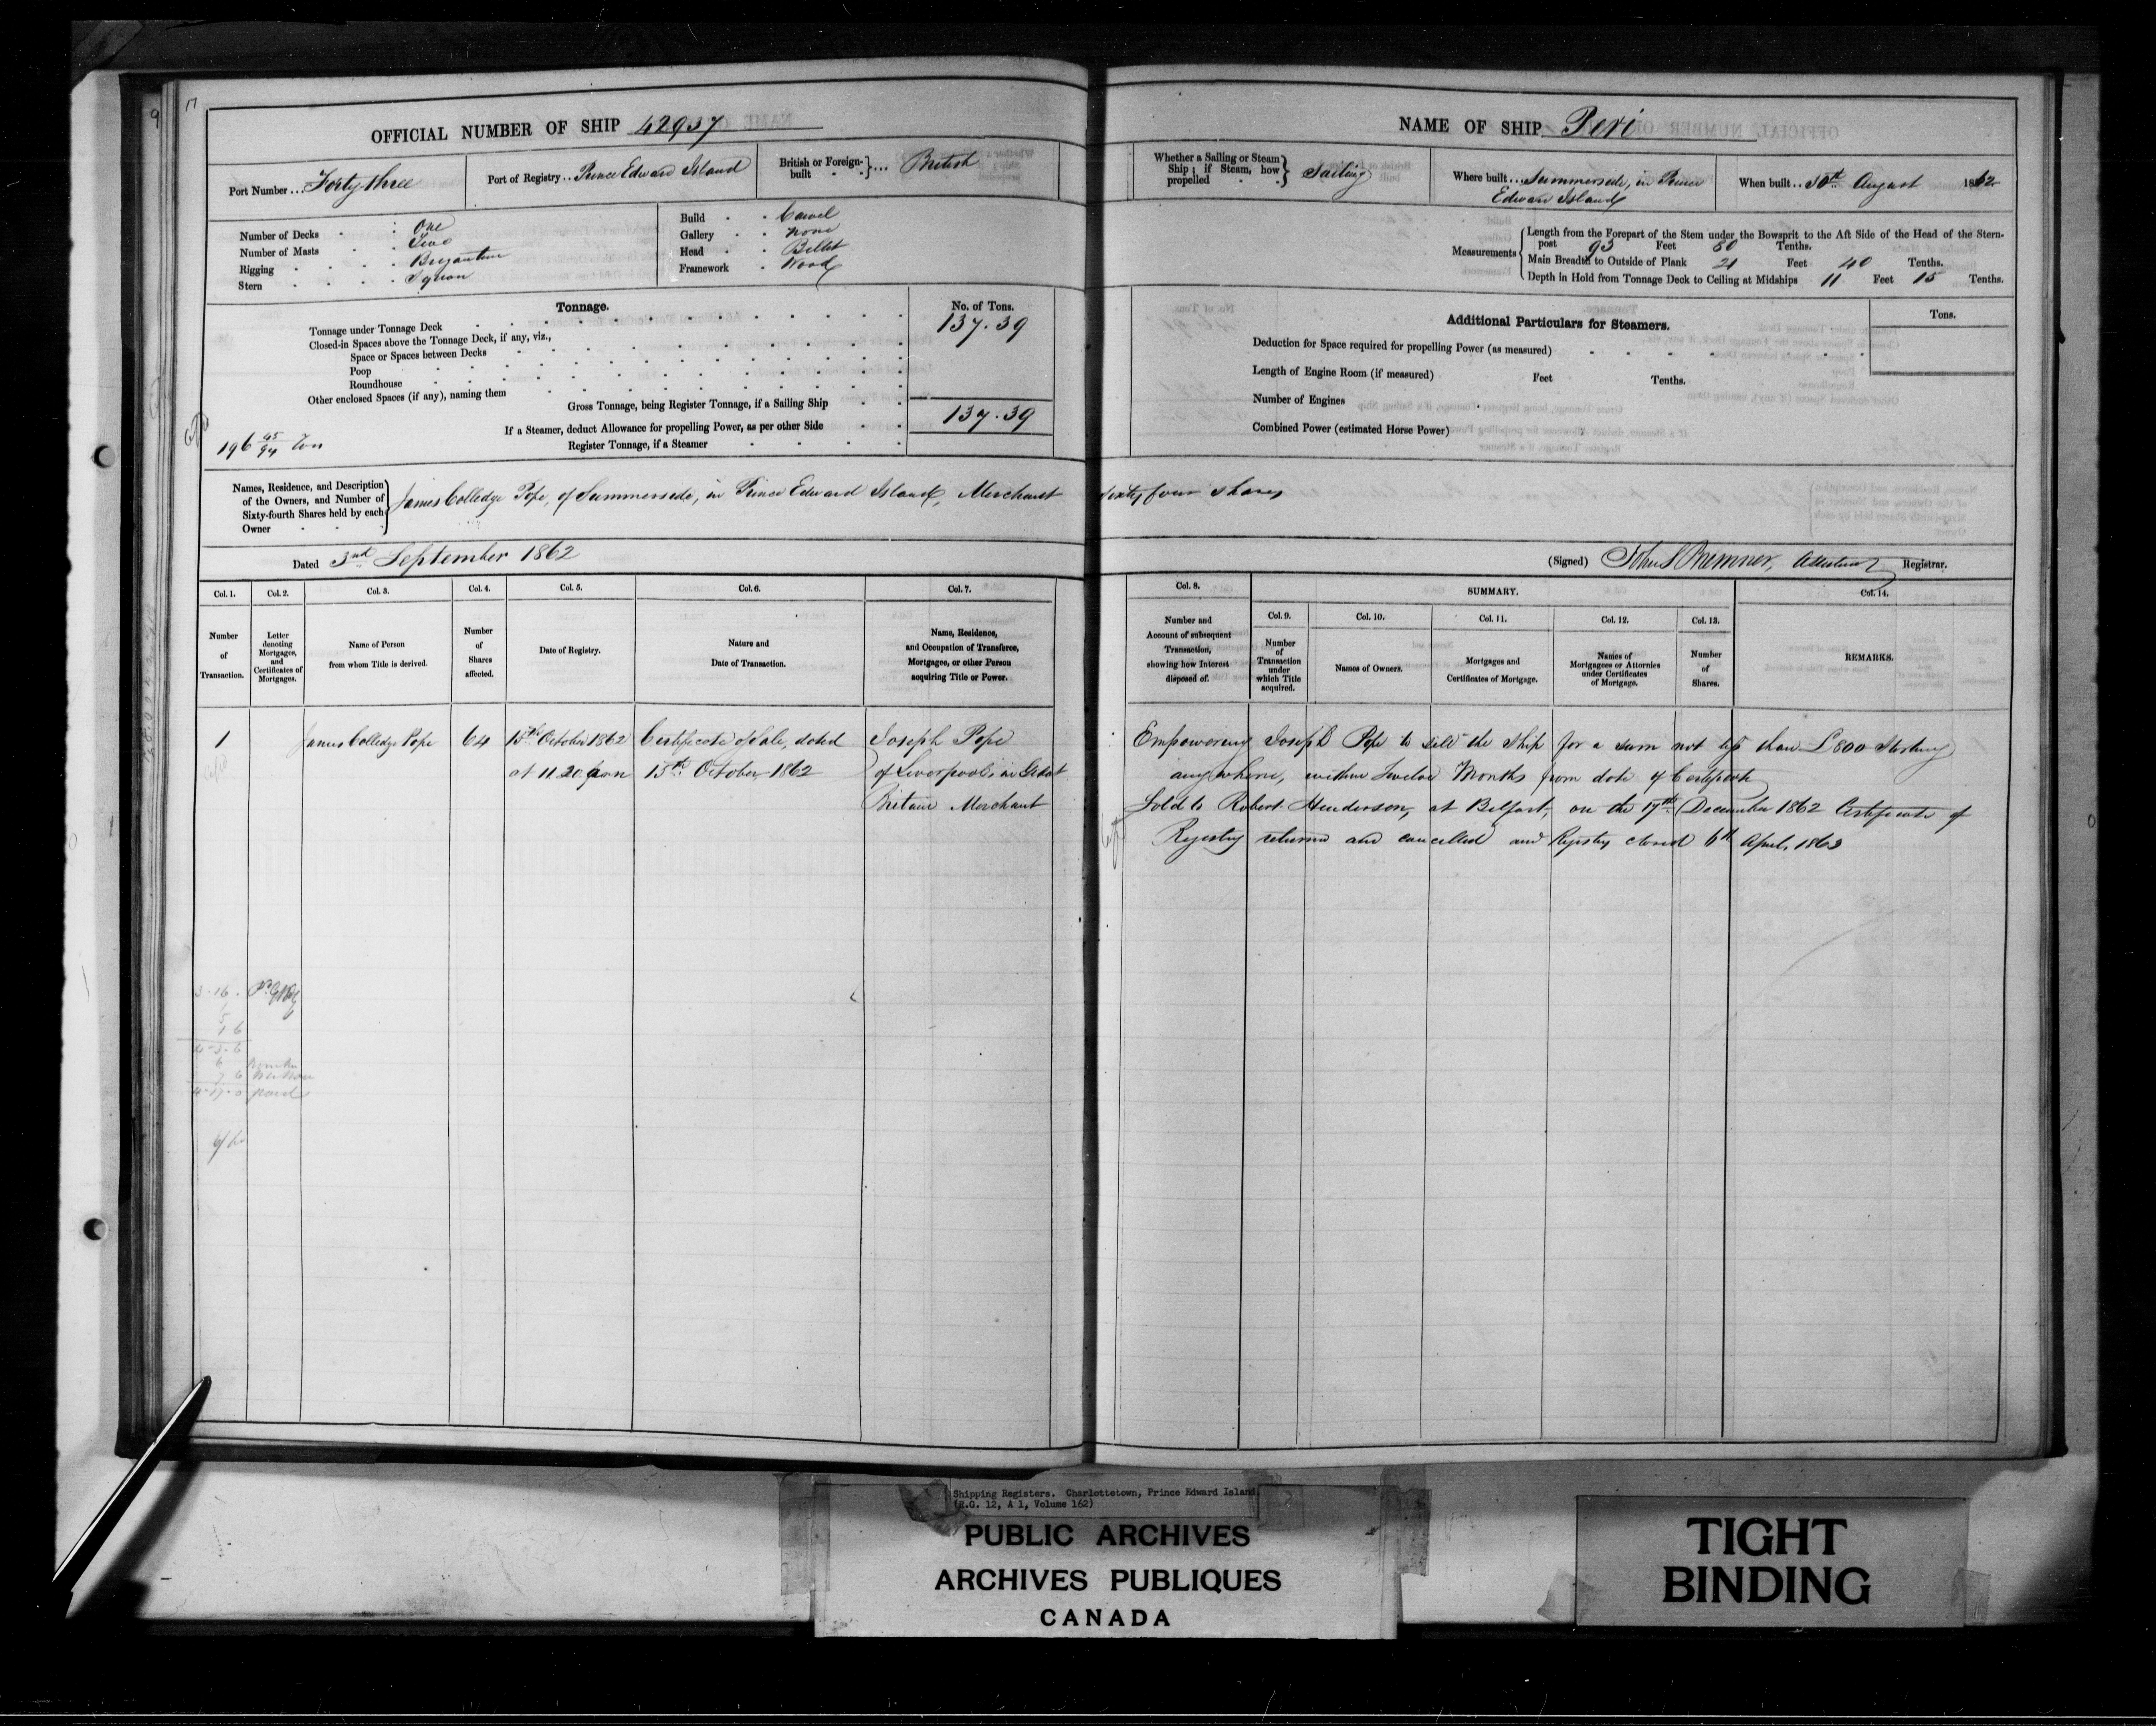 17
OFFICIAL NUMBER OF SHIP 42937
Port Number ... Forty three
Port of Registry .. Prince Edward Island
British or Foreign-built ... British
Number of Decks One
Number of Masts Two
Rigging Brigantine
Stern Square
Build Carvel
Gallery None
Head Billet
Framework Wood
Tonnage. No. of Tons.
Tonnage under Tonnage Deck 137.39
Closed-in Spaces above the Tonnage Deck, if any, viz.,
Space or Spaces between Decks
Poop
Roundhouse
Other enclosed Spaces (if any), naming them
Gross Tonnage, being Register Tonnage, if a Sailing Ship 137.39
If a Steamer, deduct Allowance for propelling Power, as per other Side
Register Tonnage, if a Steamer
196 45/94 Ton
NAME OF SHIP Peri
Whether a Sailing or Steam Ship; if Steam, how propelled Sailing
Where built ... Summerside, in Prince
Edward Island
When built .. 30th August 1862
Measurements
Length from the Forepart of the Stem under the Bowsprit to the Aft Side of the Head of the Stern-
post 93 Feet 80 Tenths.
Main Breadth to Outside of Plank 21 Feet 40 Tenths.
Depth in Hold from Tonnage Deck to Ceiling at Midships 11 Feet 15 Tenths.
Additional Particulars for Steamers. Tons.
Deduction for Space required for propelling Power (as measured)
Length of Engine Room (if measured) Feet Tenths.
Number of Engines
Combined Power (estimated Horse Power)
Names, Residence, and Description
of the Owners, and Number of
Sixty-fourth Shares held by each
Owner
James Colledge Pope, of Summerside, in Prince Edward Island, Merchant Sixty four shares
Dated 3rd September 1862
(Signed) John S Bremner, Assistant Registrar.
Col. 1. Number of Transaction.
Col. 2. Letter denoting Mortgages, and Certificates of Mortgages.
Col. 3. Name of Person from whom Title is derived.
Col. 4. Number of Shares affected.
Col. 5. Date of Registry.
Col. 6. Nature and Date of Transaction.
Col. 7. Name, Residence, and Occupation of Transferee, Mortgagee, or other Person acquiring Title or Power.
Col. 8. Number and Account of subsequent Transaction, showing how Interest disposed of.
SUMMARY.
Col. 9. Number of Transaction under which Title acquired.
Col. 10. Names of Owners.
Col. 11. Mortgages and Certificates of Mortgage.
Col. 12. Names of Mortgagees or Attornies under Certificates of Mortgage.
Col. 13. Number of Shares.
Col. 14. REMARKS.
1 James Colledge Pope 64 15th October 1862 Certificate of Sale, dated Joseph Pope
at 11.20 15th October 1862 of Liverpool, in Great
Britain Merchant
Empowering Joseph Pope to sell the Ship for a sum not less than £800 Sterling
any where, within Twelve Months from date of Certificate
Sold to Robert Henderson, at Belfast, on the 17th December 1862 Certificate of
Registry returned and cancelled and Registry closed 6th April, 1863
4-3-6
7 6
4-17-0 paid
Shipping Registers. Charlottetown, Prince Edward Island
(R.G. 12, A 1, Volume 162)
PUBLIC ARCHIVES
ARCHIVES PUBLIQUES
CANADA
TIGHT
BINDING